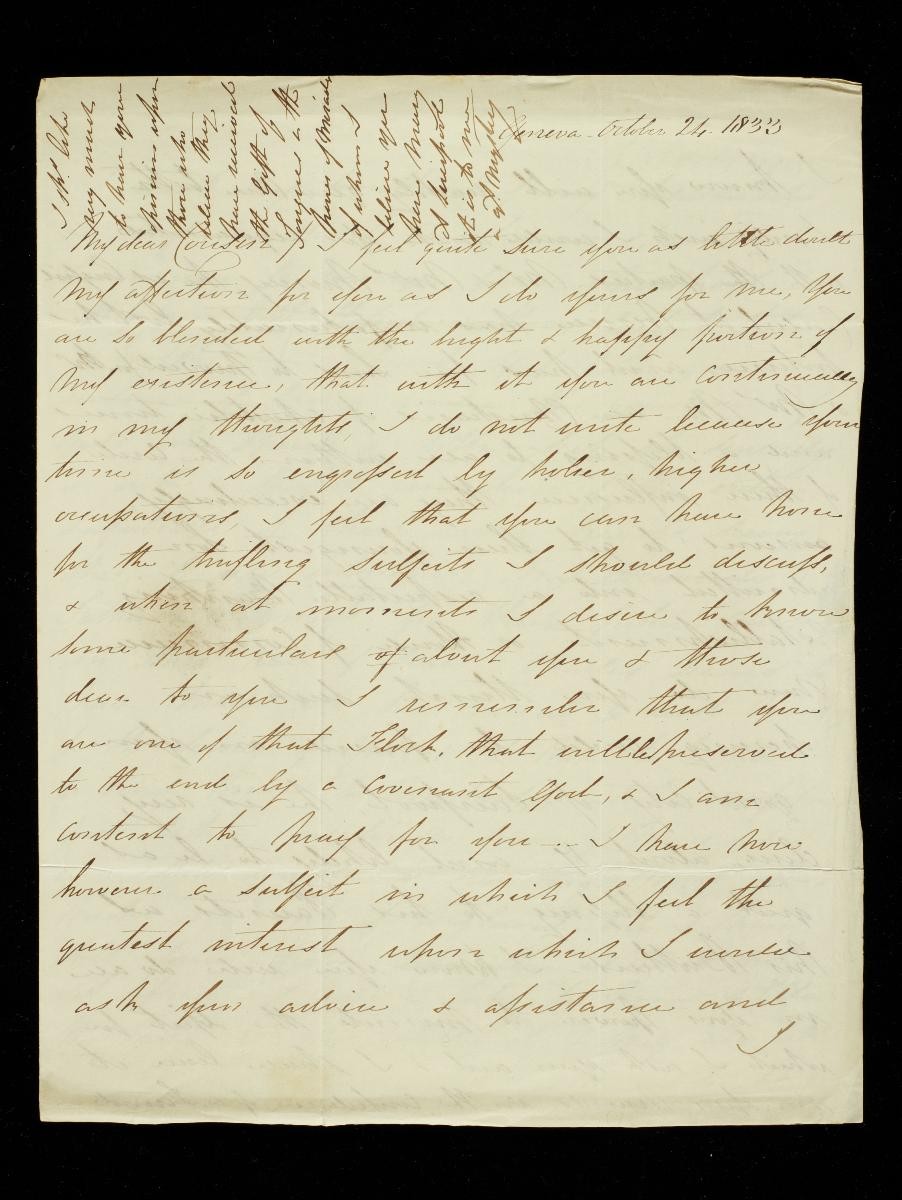 Geneva - October 24. 1833
My dear Cousin, I feel quite sure you as little doubt
my affection for you as I do yours for me, You
are so blended with the bright & happy portion of
my existence, that with it you are continually
in my thoughts, I do not write because your
time is so engrossed by holier, higher
occupations, I feel that you can have none
for the trifling subjects I should discuss,
& when at moments I desire to know
some particulars of about you & those
dear to you I remember that you
are one of that Flock, that will be preserved
to the end by a covenant God, & I am
content to pray for you - - I have now
however a subject in which I feel the
greatest interest upon which I would
ask your advice & assistance and
I
very much
to have your
opinion upon
those who
believe they
have received
the Gift of
Tongues & the
power of
of whom I
believe you
have many